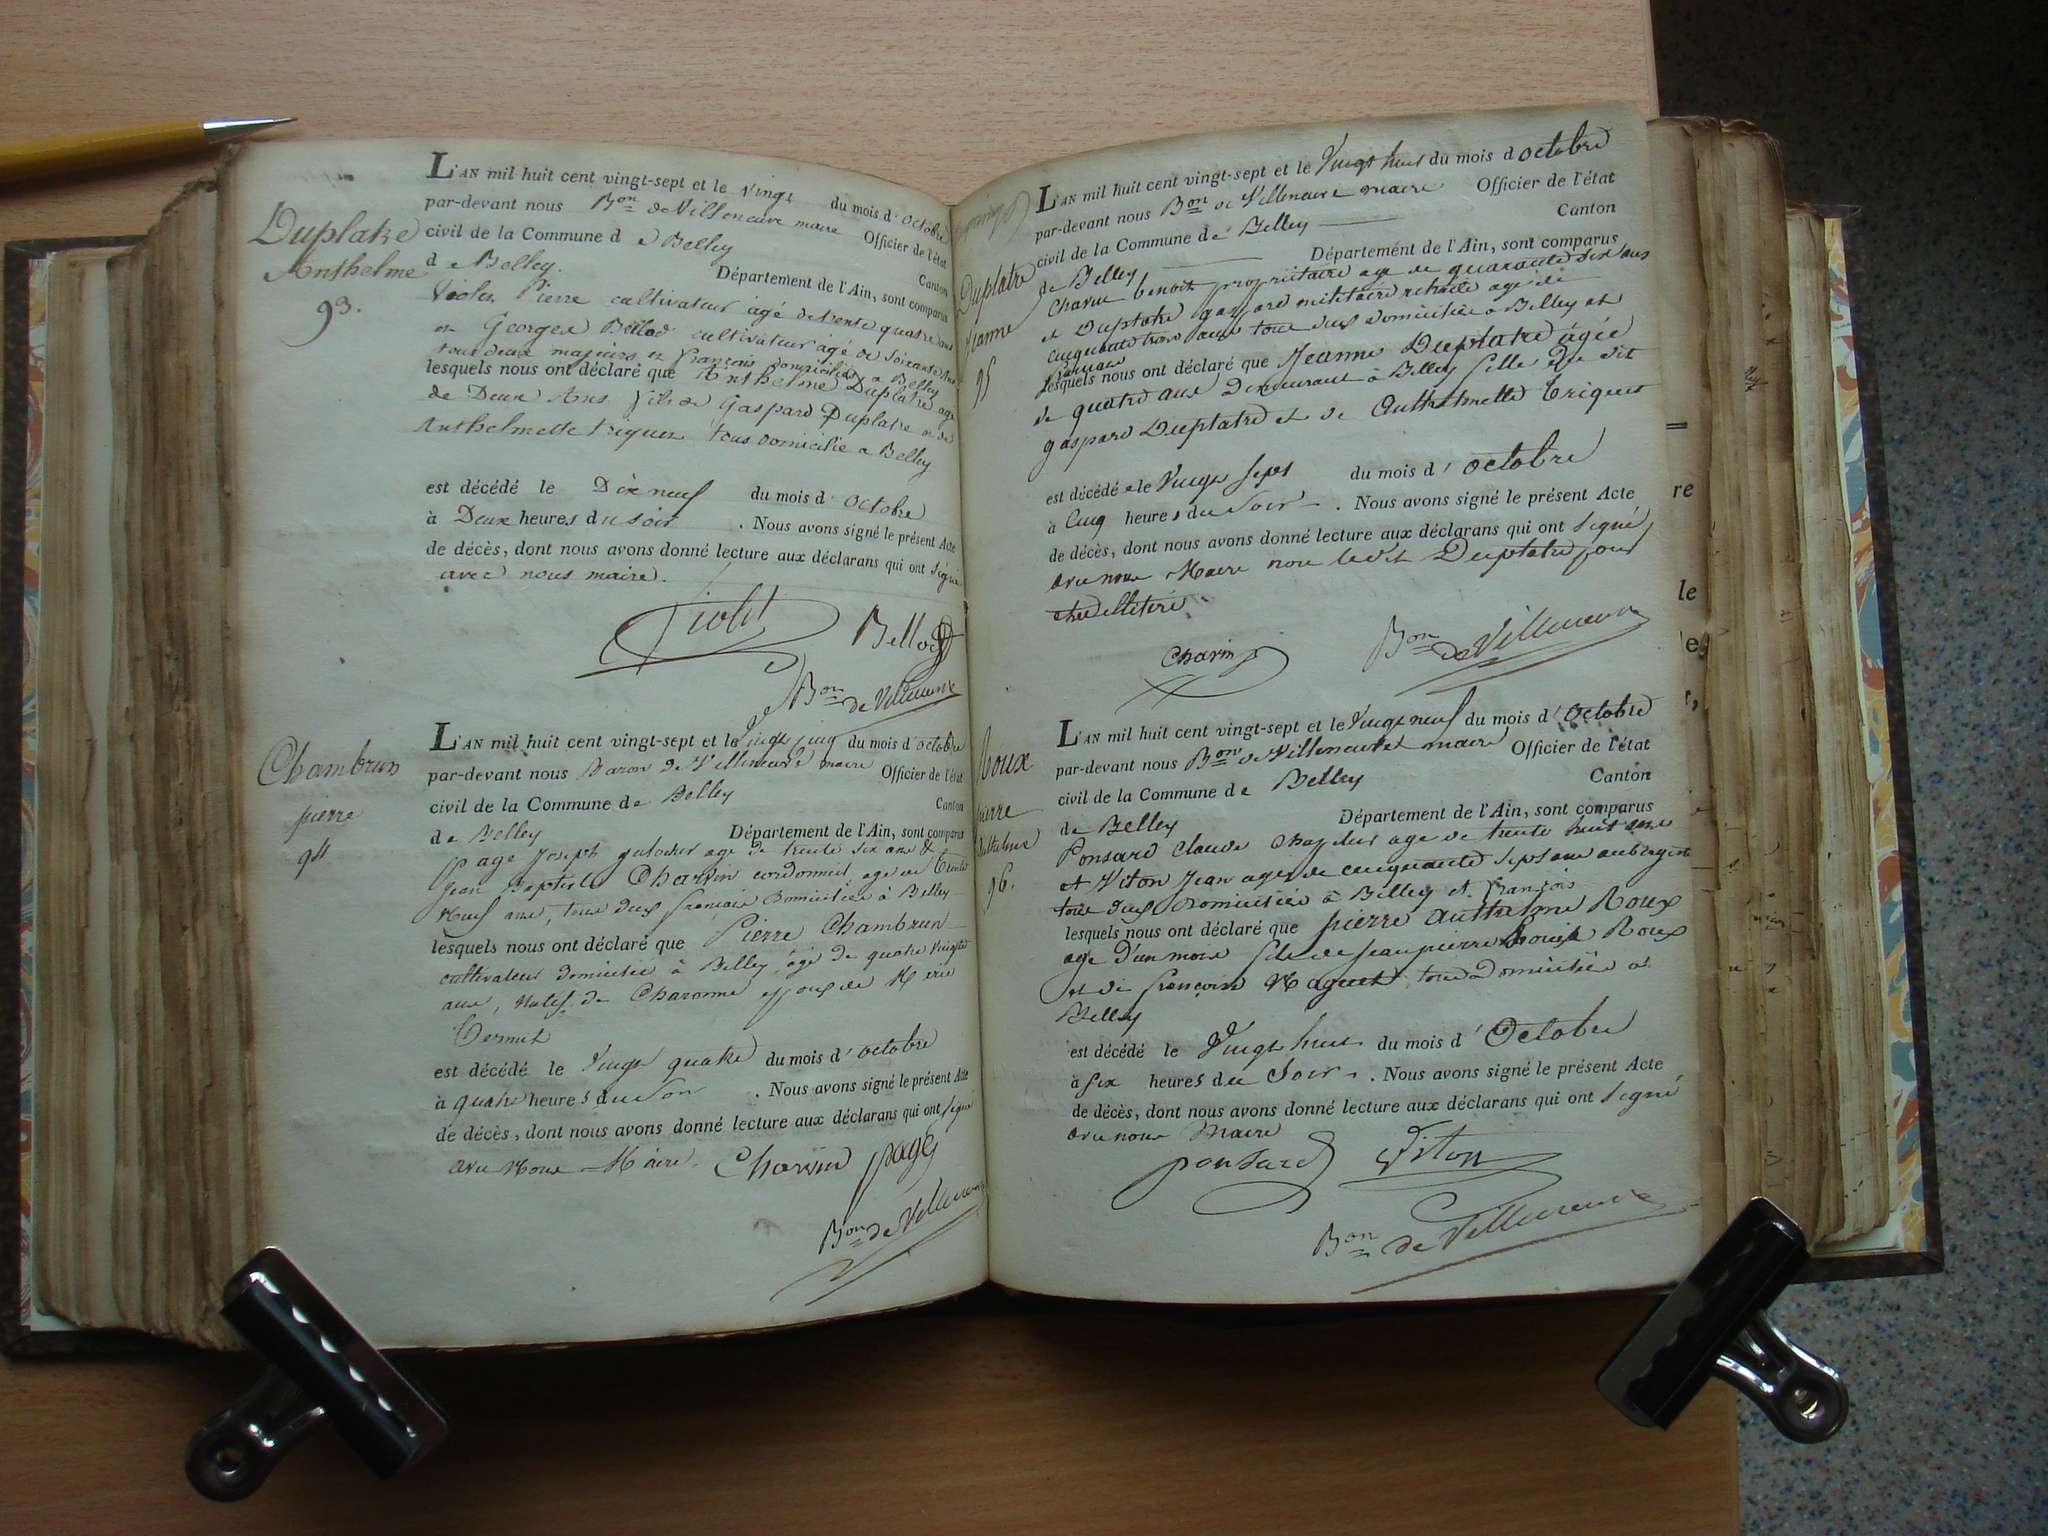 Duplatre
Anthelme
93.
L'AN mil huit cent vingt-sept et le vingt du mois d'octobre
par-devant nous Bon de Villeneuve maire Officier de l'état
civil de la Commune d e Belley Canton
d e Belley. Département de l'Ain, sont comparus
Violet Pierre cultivateur âgé de trente quatre ans
et George Bellod cultivateur agé de soixante ans
tous deux majeurs et français domiciliés a Belley
lesquels nous ont déclaré que Anthelme Duplatre agé
de Deux Ans fils de Gaspard Duplatre et de
Anthelmette triquet tous domicilié a Belley
est décédé le Dix neuf du mois d'octobre
à Deux heures du soir . Nous avons signé le présent Acte
de décès, dont nous avons donné lecture aux déclarans qui ont signé
avec nous maire.
Violet Bellod
Bon de Villeneuve
Chambrun
pierre
94
L'AN mil huit cent vingt-sept et le vingt cinq du mois d'octobre
par-devant nous Baron de Villeneuve maire Officier de l'état
civil de la Commune de Belley Canton
de Belley Département de l'Ain, sont comparus
page Joseph galochier age de trente six ans &
Jean Baptiste Charvin cordonnier, age de trente
Neuf ans, tous deux français Domiciliés à Belley
lesquels nous ont déclaré que Pierre Chambrun
cultivateur domicilié à Belley, âgé de quatre vingts
ans, natif de Charonne époux de Marie
Vermit
est décédé le vingt quatre du mois d'octobre
à quatre heures du Soir . Nous avons signé le présent Acte
de décès, dont nous avons donné lecture aux déclarans qui ont signé
avec Nous Maire. Charvin page
Bon de Villeneuve
Duplatre
Jeanne
95
L'AN mil huit cent vingt-sept et le Vingt huit du mois d octobre
par-devant nous Bon de Villeneuve maire Officier de l'état
civil de la Commune de Belley Canton
de Belley Département de l'Ain, sont comparus
benoit propriétaire age de quarante six ans
et Duplatre gaspard militaire retraité agé de
cinquante trois ans tous deux domiciliés à Belley et
français
lesquels nous ont déclaré que Jeanne Duplatre âgée
de quatre ans demeurant à Belley fille du dit
gaspard Duplatre et de Anthelmette triquet
est décédé e le Vingt Sept du mois d'octobre
à Cinq heures du Soir . Nous avons signé le présent Acte
de décès, dont nous avons donné lecture aux déclarans qui ont signé
avec nous Maire non ledit Duplatre pour
être illitéré
Bon de Villeneuve
Roux
pierre
Anthelme
96.
L'AN mil huit cent vingt-sept et le Vingt neuf du mois d'octobre
par-devant nous Bon de Villeneuve maire Officier de l'état
civil de la Commune de Belley Canton
de Belley Département de l'Ain, sont comparus
Ponsard Claude Chapelier age de trente huit ans
et Viton Jean agé de cinquante sept ans aubergiste
tous deux domiciliés à Belley et français
lesquels nous ont déclaré que pierre Anthelme Roux
age D'un mois fils de Jean pierre Louis Roux
et de françoise Maguet tous domiciliés à
Belley
est décédé le Vingt huit du mois d'Octobre
à six heures du Soir . Nous avons signé le présent Acte
de décès, dont nous avons donné lecture aux déclarans qui ont signé
avec nous Maire
ponsard Viton
Bon de Villeneuve
re
le